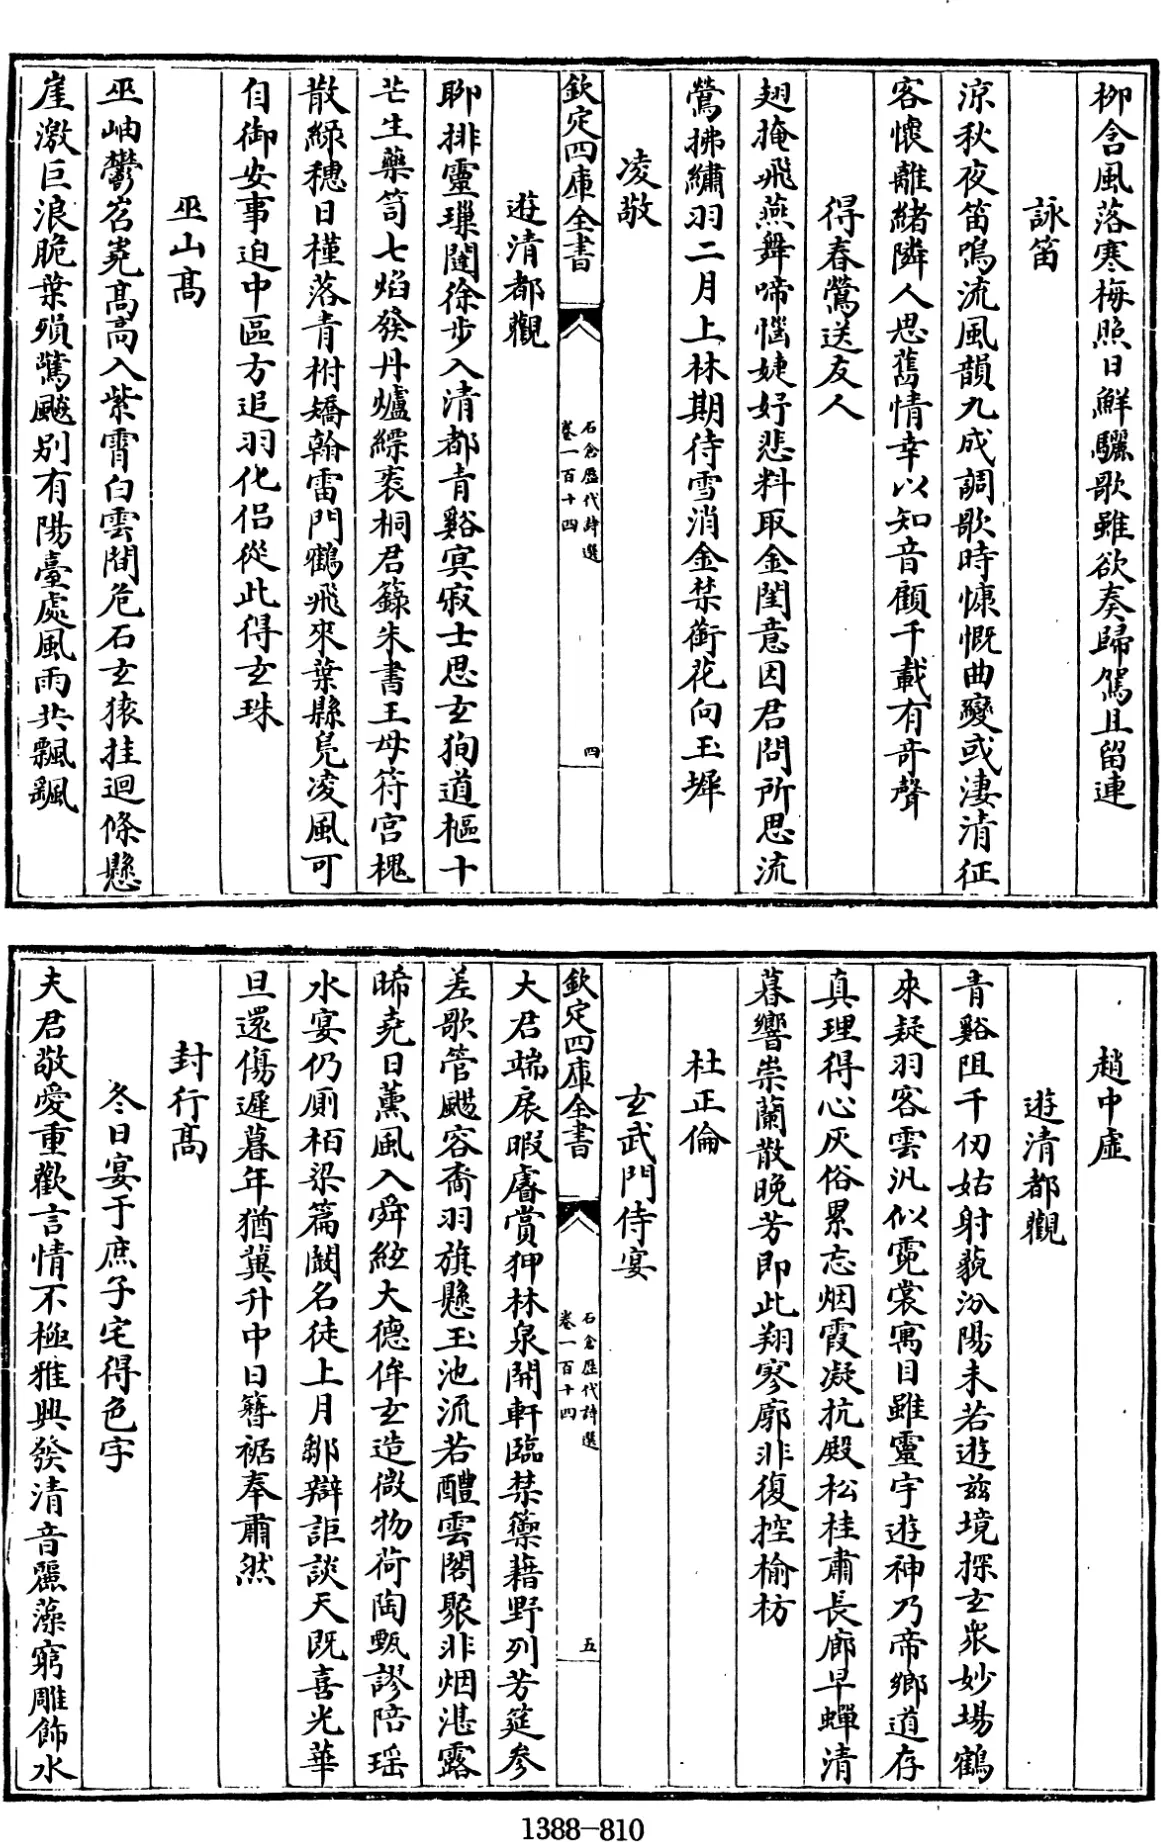 柳含風落寒梅照日鮮驪歌雖欲奏歸駕且留連
詠笛
涼秋夜笛鳴流風韻九成調歌時慷慨曲變或淒清征
客懷離緒隣人思舊情幸以知音顧千載有奇聲
得春鶯送友人
翅掩飛燕舞啼惱婕妤悲料取金閨意因君問所思流
鶯拂繡羽二月上林期待雪消金禁銜花向玉墀
凌敬
欽定四庫全書
石倉歷代詩選
卷一百十四
四
遊清都觀
聊排靈璅闥徐步入清都青谿冥寂士思玄狥道樞十
芒生藥笥七焰發丹爐縹袠桐君籙朱書王母符宮槐
散綠穗日槿落青柎矯翰雷門鶴飛來葉縣鳧凌風可
自御安事迫中區方追羽化侶從此得玄珠
巫山高
巫岫鬱岧嶤高高入紫霄白雲間危石玄猿挂迴條懸
崖激巨浪脆葉殞驚飈別有陽臺處風雨共飄颻
趙中虛
遊清都觀
青谿阻千仞姑射藐汾陽未若遊兹境探玄衆妙場鶴
來疑羽客雲汎似霓裳寓目雖靈宇遊神乃帝鄉道存
真理得心灰俗累忘烟霞凝抗殿松桂肅長廊早蟬清
暮響崇蘭散晚芳即此翔寥廓非復控榆枋
杜正倫
玄武門侍宴
欽定四庫全書
石倉歷代詩選
卷一百十四
五
大君端扆暇睿賞狎林泉開軒臨禁籞藉野列芳筵參
差歌管颺容裔羽旗懸玉池流若醴雲閣聚非烟湛露
晞堯日薰風入舜絃大德侔玄造微物荷陶甄謬陪瑶
水宴仍厠栢梁篇闞名徒上月鄒辯詎談天既喜光華
旦還傷遲暮年猶冀升中日簪裾奉肅然
封行高
冬日宴于庶子宅得色字
夫君敬愛重歡言情不極雅興發清音麗藻窮雕飾水
1388-810